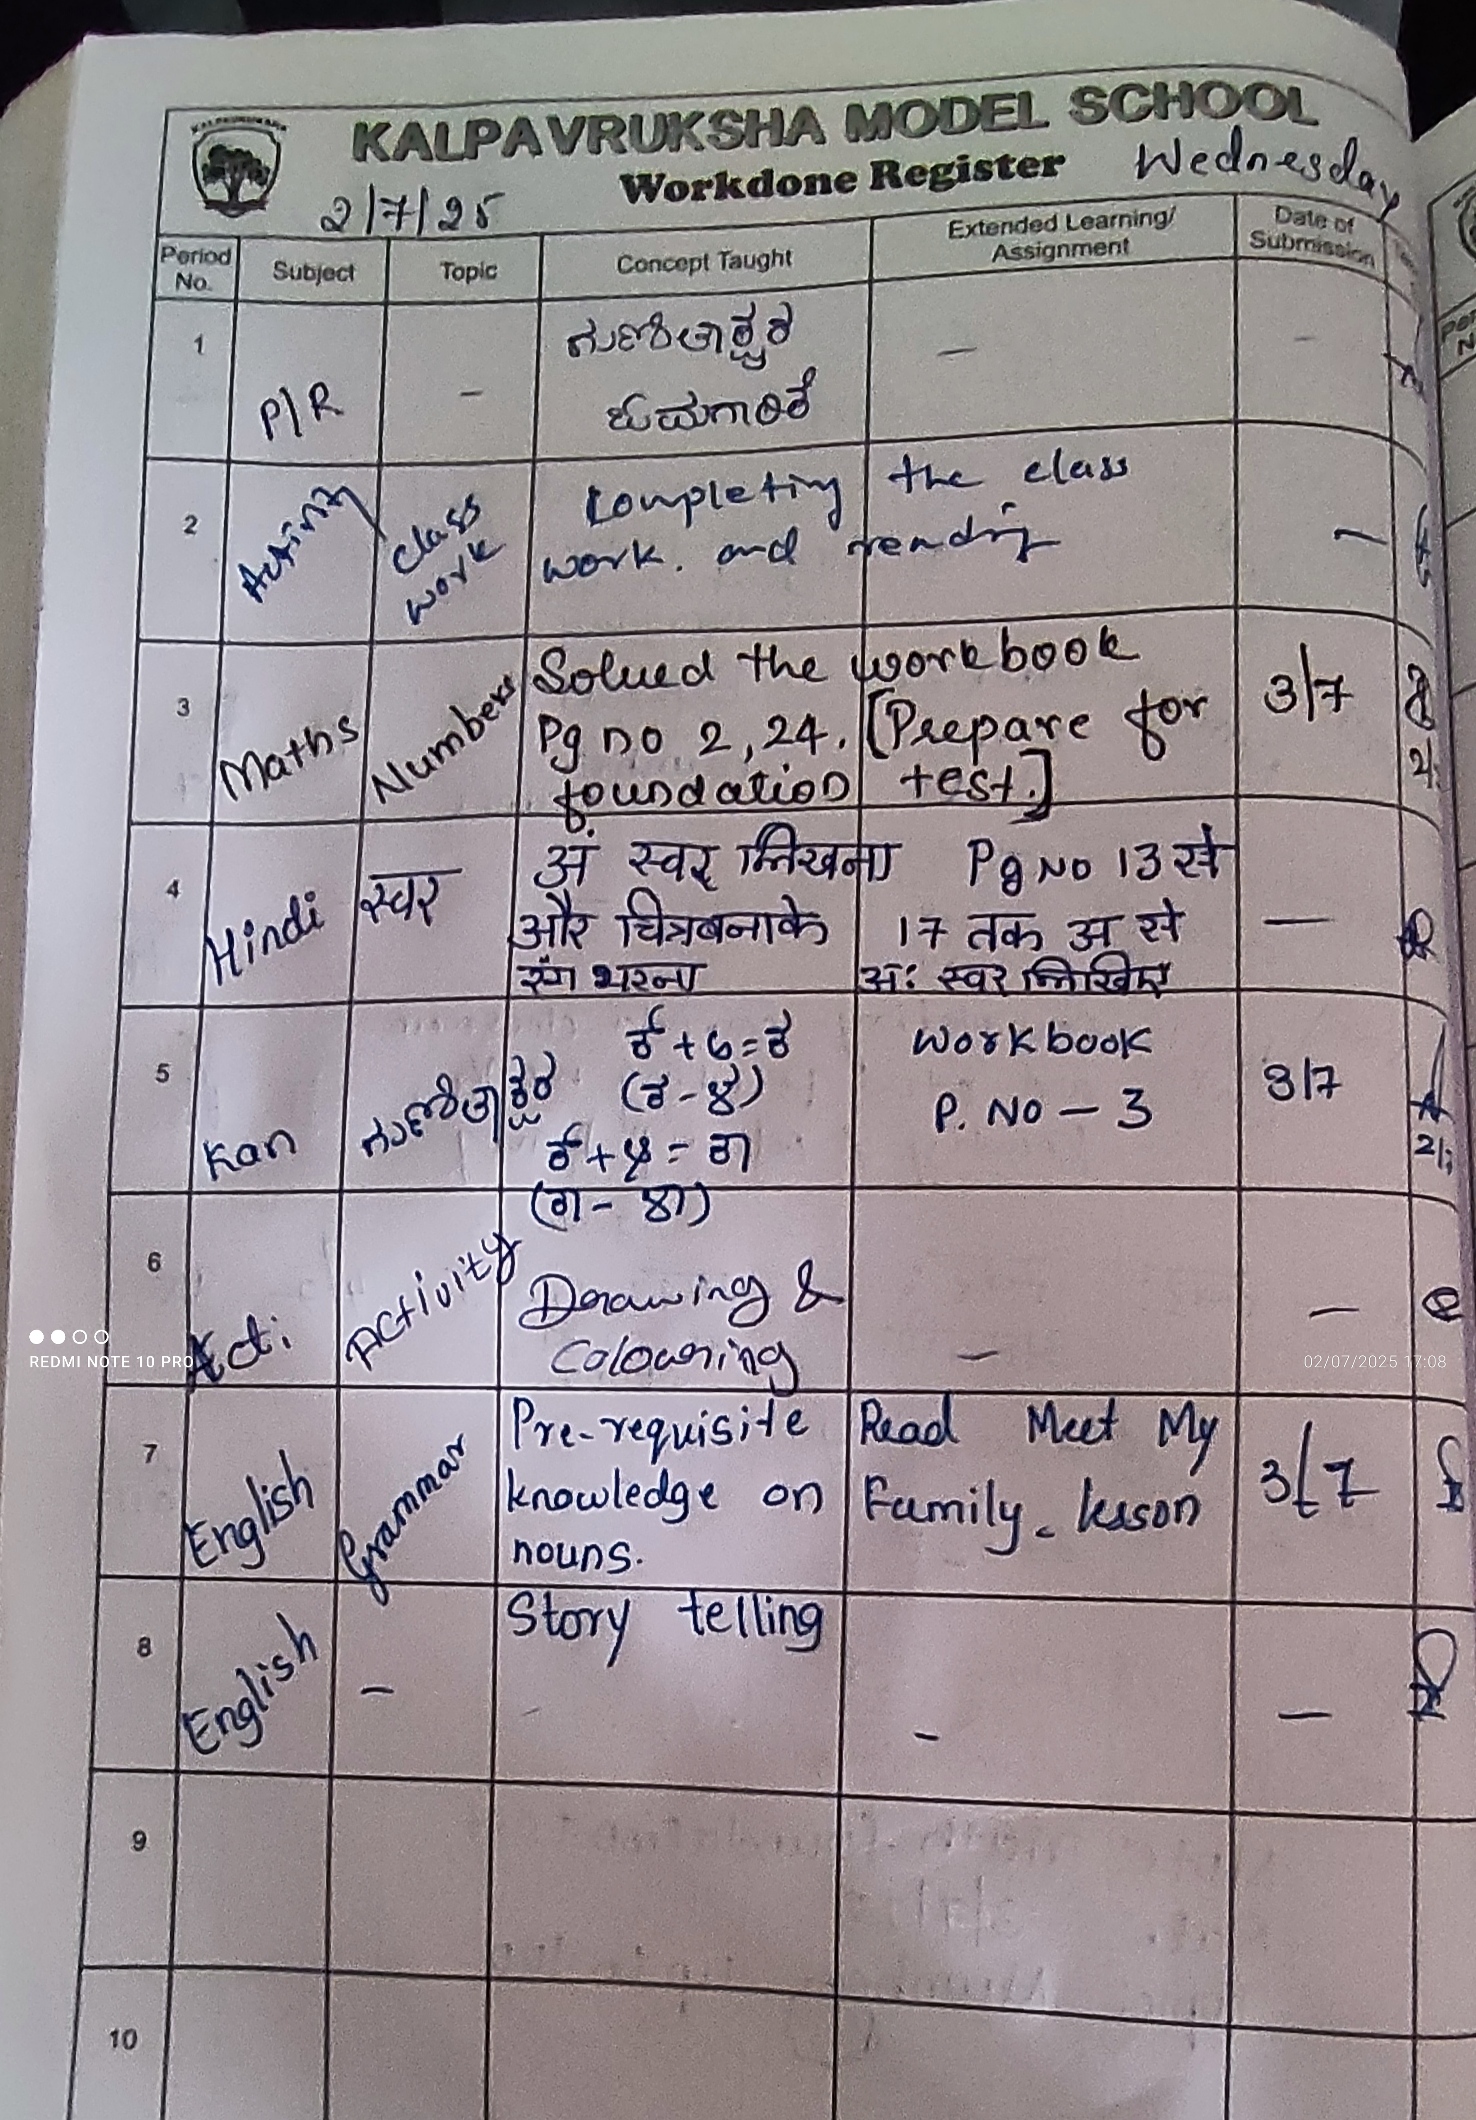 KALPAVRUKSHA MODEL SCHOOL
Workdone Register
Wednesday
2/7/25
Period No.
Subject
Topic
Concept Taught
Extended Learning/ Assignment
Date of Submission
1
P/R
-
ಗುಣಿತಾಕ್ಷರ
-
-
2
Activity
Class
work
Completing the class
work. and reading
-
3
Maths
Numbers
Solved the workbook
Pg no 2, 24. [Prepare for
foundation test.]
3/7
4
Hindi
स्वर
अं स्वर लिखना
और चित्रबनाके
रंग भरना
Pg No 13 से
17 तक अ से
अः स्वर लिखिए
-
5
Kan
ಗುಣಿತಾಕ್ಷರ
(ಕ - ಳ)
Workbook
P. No - 3
3/7
6
Acti
Activity
Drawing &
Colouring
-
-
7
English
Grammar
Pre-requisite
knowledge on
nouns.
Read Meet My
Family lesson
3/7
8
English
-
Story telling
-
-
9
10
REDMI NOTE 10 PRO
02/07/2025 17:08